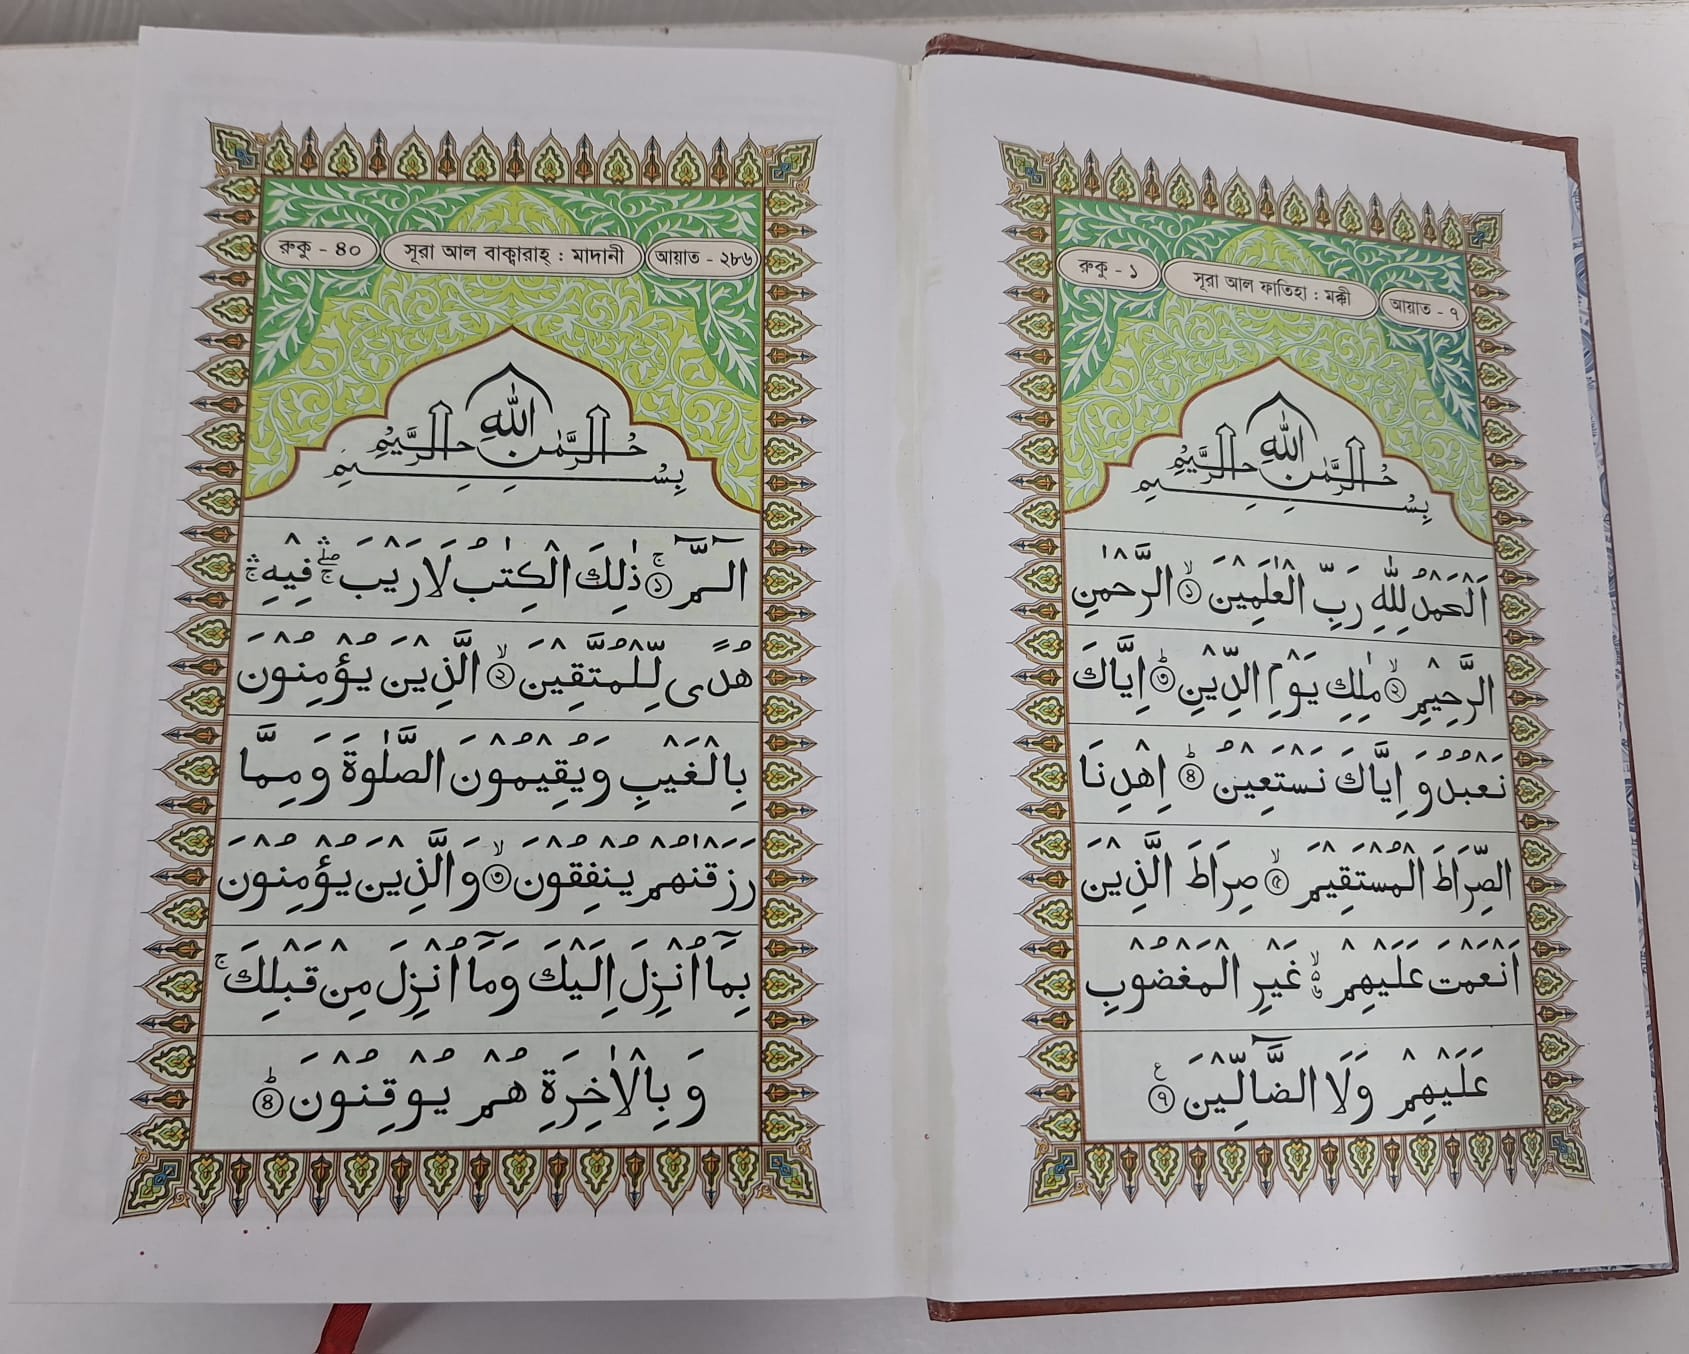 রুকু - ১
সূরা আল ফাতিহা : মক্কী
আয়াত - ৭
بِسْمِ اللّٰهِ الرَّحْمٰنِ الرَّحِيْمِ
اَلْحَمْدُ لِلّٰهِ رَبِّ الْعٰلَمِيْنَ ۙ﴿১﴾ الرَّحْمٰنِ
الرَّحِيْمِ ۙ﴿২﴾ مٰلِكِ يَوْمِ الدِّيْنِ ؕ﴿৩﴾ اِيَّاكَ
نَعْبُدُ وَ اِيَّاكَ نَسْتَعِيْنُ ؕ﴿৪﴾ اِهْدِنَا
الصِّرَاطَ الْمُسْتَقِيْمَ ۙ﴿৫﴾ صِرَاطَ الَّذِيْنَ
اَنْعَمْتَ عَلَيْهِمْ ۙ۬ۦ غَيْرِ الْمَغْضُوْبِ
عَلَيْهِمْ وَلَا الضَّآلِّيْنَ ﴿৭﴾ ع
রুকু - ৪০
সূরা আল বাক্বারাহ্ : মাদানী
আয়াত - ২৮৬
بِسْمِ اللّٰهِ الرَّحْمٰنِ الرَّحِيْمِ
الٓـمّٓ ۚ﴿১﴾ ذٰلِكَ الْكِتٰبُ لَا رَيْبَ ۛۖۚ فِيْهِ ۛۚ
هُدًى لِّلْمُتَّقِيْنَ ۙ﴿২﴾ الَّذِيْنَ يُؤْمِنُوْنَ
بِالْغَيْبِ وَيُقِيْمُوْنَ الصَّلٰوةَ وَمِمَّا
رَزَقْنٰهُمْ يُنْفِقُوْنَ ۙ﴿৩﴾ وَالَّذِيْنَ يُؤْمِنُوْنَ
بِمَآ اُنْزِلَ اِلَيْكَ وَمَآ اُنْزِلَ مِنْ قَبْلِكَ ۚ
وَبِالْاٰخِرَةِ هُمْ يُوْقِنُوْنَ ؕ﴿৪﴾